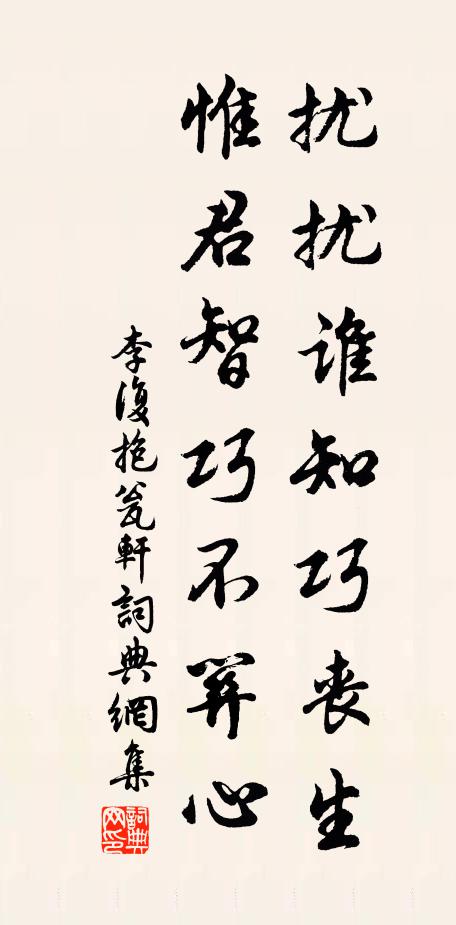 扰扰谁知巧丧生
惟君智巧不关心
李復抱瓮軒詞典網集
詞典网印